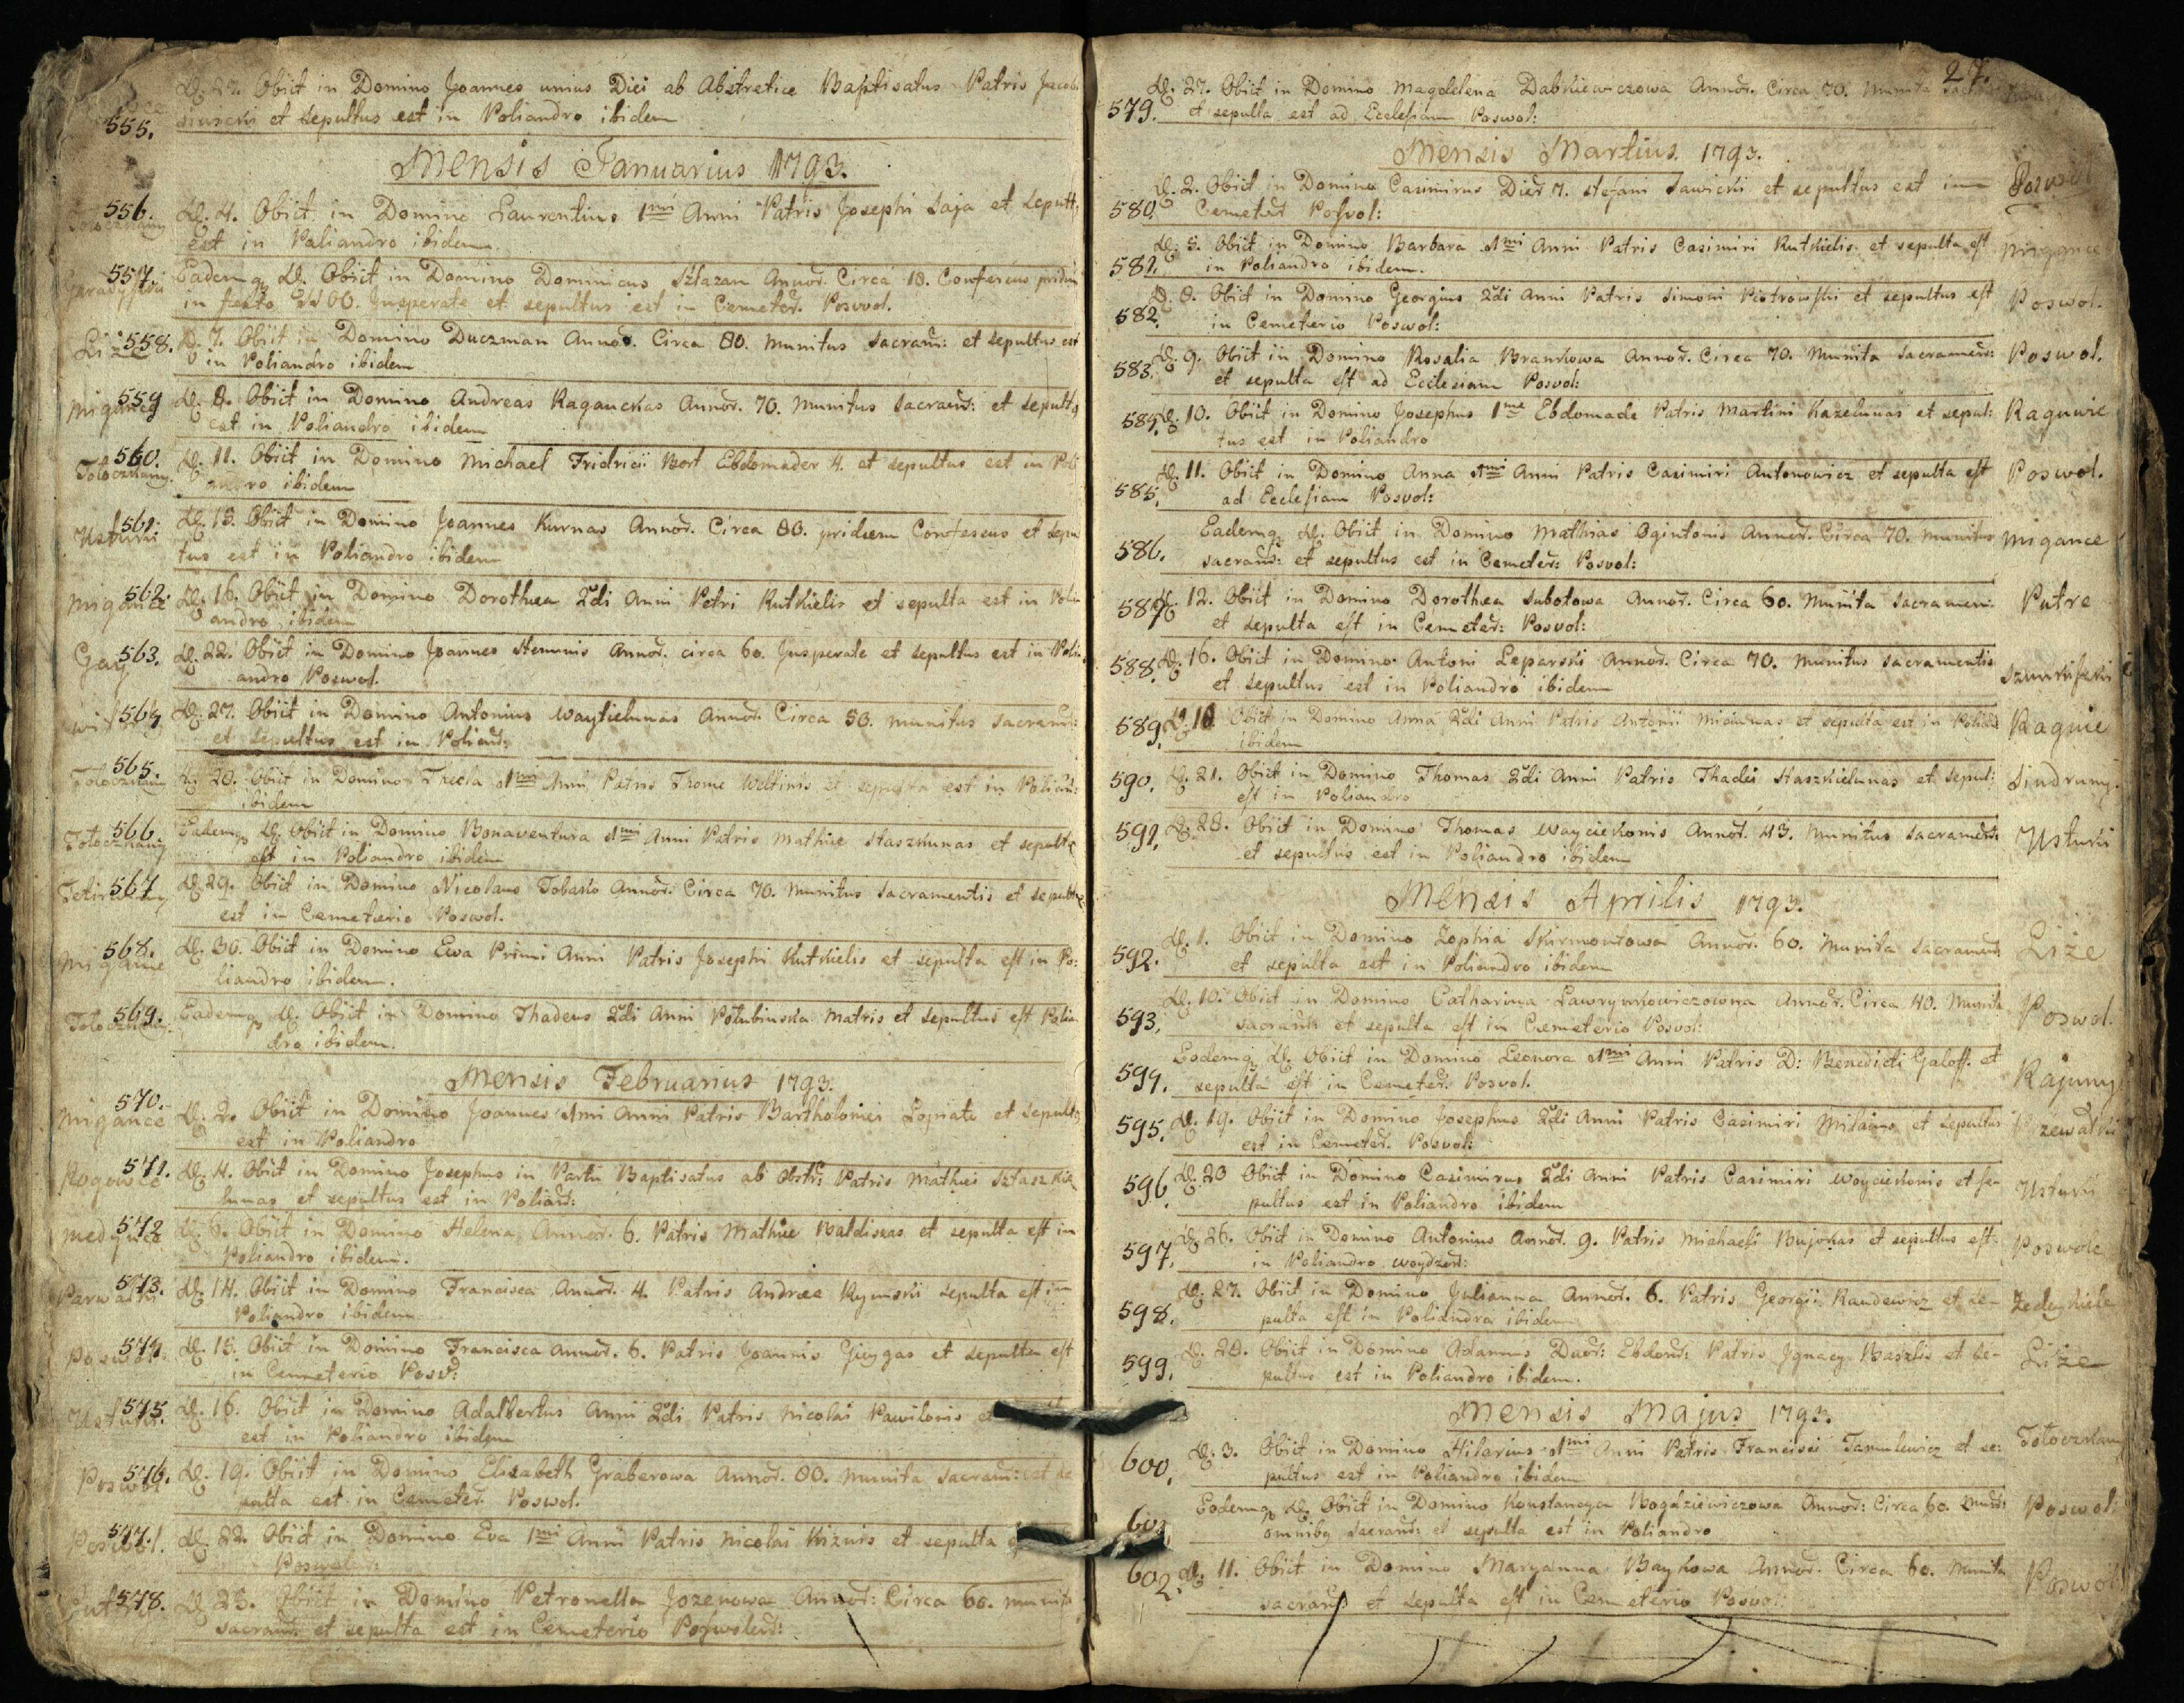 D. 27. Obiit in Domino Joannes unius Diei ab Obstretice Baptisatus Patris Jacobi
555. et sepultus est in Poliandro ibidem
Mensis Januarius 1793.
556. D. 4. Obiit in Domino Laurentius 1mi Anni Patris Josephi Saja et sepult:
Totoczkany est in Poliandro ibidem
557. Eademq D. Obiit in Domino Dominicus Sztazan Annor. Circa 18. Confessus pridem
in festo Insperate et sepultus est in Cemeter. Posvol.
Liże 558. D. 7. Obiit in Domino Duczman Annor. Circa 80. Munitus Sacram: et sepultus est
in Poliandro ibidem
Migance 559 D. 8. Obiit in Domino Andreas Raganckas Annor. 70. Munitus Sacram: et sepultq
est in Poliandro ibidem
560. D. 11. Obiit in Domino Michael Fridricii Bort Ebdomader 4. et sepultus est in Poli
Totoczkany. andro ibidem
561. D. 13. Obiit in Domino Joannes Kurnas Annor. Circa 80. pridem Confessus et sepu
Usturki tus est in Poliandro ibidem
Migance 562. D. 16. Obiit in Domino Dorothea 2di Anni Petri Rutkielis et sepulta est in Poli
andro ibidem
Gay 563. D. 22. Obiit in Domino Joannes Stemunis Annor. circa 60. Insperate et sepultus est in Poli
andro Poswol.
564 D. 27. Obiit in Domino Antonius Waytielunas Annor. Circa 50. munitus Sacram:
et sepultus est in Poliand:
565. D. 28. Obiit in Domino Tecla 1mi Anni Patris Thome Weltinis et sepulta est in Polian:
Totoczkany ibidem
566. Eademq D. Obiit in Domino Bonaventura 1mi Anni Patris Mathie Staszkunas et sepultq
Totoczkany est in Poliandro ibidem
567 D. 29. Obiit in Domino Nicolaus Tobasko Annor. Circa 70. Munitus Sacramentis et sepultus
est in Cemeterio Poswol.
568. D. 30. Obiit in Domino Ewa Primi Anni Patris Josephi Rutkielis et sepulta est in Po:
Migance liandro ibidem.
569. Eademq D. Obiit in Domino Thadeus 2di Anni Potubinska Matris et sepultus est Polian
Totoczkany. dro ibidem.
Mensis Februarius 1793.
570. D. 2. Obiit in Domino Joannes 1mi Anni Patris Bartholomei Lopiata et sepultq
Migance est in Poliandro
571. D. 4. Obiit in Domino Josephus in Partu Baptisatus ab Obstr: Patris Mathei Staszkie
lunas et sepultus est in Poliand:
572 D. 6. Obiit in Domino Helena Annor. 6. Patris Mathie Baldiszas et sepulta est in
Poliandro ibidem.
573. D. 14. Obiit in Domino Francisca Annor. 4. Patris Andree Rymski sepulta est in
Poliandro ibidem
Poswol. 574. D. 15. Obiit in Domino Francisca Annor. 6. Patris Joannis Giegas et sepulta est
in Cemeterio Posv:
Usturki. 575. D. 16. Obiit in Domino Adalbertus Anni 2di Patris Nicolai Pawilonis et
est in Poliandro ibidem
Poswol 576. D. 19. Obiit in Domino Elisabeth Graberowa Annor. 80. Munita Sacram: est se
pulta est in Cemeter. Poswol.
Poswol. 577. D. 22. Obiit in Domino Eva 1mi Anni Patris Nicolai Kiznis et sepulta
578. D. 23. Obiit in Domino Petronella Jozenowa Annor: Circa 60. munita
sacram. et sepulta est in Cemeterio Poswolens:
27.
D. 27. Obiit in Domino Magdalena Dabkiewiczowa Annor. Circa 70. Munita
579. et sepulta est ad Ecclesiam Poswol:
Mensis Martius. 1793.
D. 2. Obiit in Domino Casimirus Dier 7. Stefani Sawicki et sepultus est in Poswol
580. Cemeter Posvol:
D. 5. Obiit in Domino Barbara 1mi Anni Patris Casimiri Rutkielis et sepulta est Migance
581. in Poliandro ibidem.
D. 8. Obiit in Domino Georgius 2di Anni Patris Simoni Piotrowski et sepultus est Poswol.
582. in Cemeterio Poswol:
583. D. 9. Obiit in Domino Rosalia Brankowa Annor. Circa 70. Munita Sacramen: Poswol.
et sepulta est ad Ecclesiam Posvol:
584. D. 10. Obiit in Domino Josephus 1me Ebdomade Patris Martini Kazelunas et sepul:
tus est in Poliandro
D. 11. Obiit in Domino Anna 1mi Anni Patris Casimiri Antonowicz et sepulta est Poswol.
585. ad Ecclesiam Posvol:
Eademq D. Obiit in Domino Mathias Ogintonis Annor. Circa 70. munitus Migance
586. sacram: et sepultus est in Cemeter: Posvol:
587. D. 12. Obiit in Domino Dorothea Subotowa Annor. Circa 60. Munita Sacramen: Putre
et sepulta est in Cemeter: Posvol:
588. D. 16. Obiit in Domino Antoni Leparski Annor. Circa 70. Munitus Sacramentis
et sepultus est in Poliandro ibidem
589. D. 18 Obiit in Domino Anna 2di Anni Patris Antonii Miciunas et sepulta est in Poliand
ibidem
590. D. 21. Obiit in Domino Thomas 2di Anni Patris Thadei Staszkielunas et sepul: Sindruny.
est in Poliandro
591. D. 28. Obiit in Domino Thomas Wayciekonis Annor. 43. Munitus Sacrament: Usturki
et sepultus est in Poliandro ibidem
Mensis Aprilis 1793.
D. 1. Obiit in Domino Zophia Skirmontowa Annor. 60. Munita Sacrament: Liże
592. et sepulta est in Poliandro ibidem
D. 10. Obiit in Domino Catharina Lawrynkowiczowna Annor. Circa 40. Munita Poswol.
593. sacram et sepulta est in Cemeterio Posvol:
Eodemq D. Obiit in Domino Leonora 1mi Anni Patris D: Benedicti Galoff. et Rajuny
594. sepulta est in Cemeter. Posvol.
595. D. 19. Obiit in Domino Josephus 2di Anni Patris Casimiri Milaiins et sepultus
est in Cemeter. Posvol:
596 D. 20 Obiit in Domino Casimirus 2di Anni Patris Casimiri Woyciekonis et se- Usturki
pultus est in Poliandro ibidem
D. 26. Obiit in Domino Antonius Annor. 9. Patris Michaeli Bujonas et sepultus est. Poswole
597. in Poliandro woydzed:
D. 27. Obiit in Domino Julianna Annor. 6. Patris Georgii Randewicz et se-
598. pulta est in Poliandro ibidem
D. 28. Obiit in Domino Adamus Duor: Ebdom: Patris Ignacy Baszlis et se- Liże
599. pultus est in Poliandro ibidem.
Mensis Majus 1793.
600. D. 3. Obiit in Domino Hilarius 1mi Anni Patris Francisci Tamulewicz et se: Totoczkany
pultus est in Poliandro ibidem
Eodemq D. Obiit in Domino Konstancya Bogdziewiczowa Annor: Circa 60. Mun: Poswol:
omnibq Sacram: et sepulta est in Poliandro
602. D. 11. Obiit in Domino Maryanna Baykowa Annor. Circa 60. Munita Poswol
sacram: et sepulta est in Cemeterio Posvol: